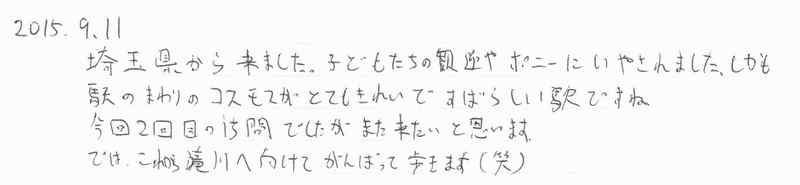 2015.9.11
埼玉県から来ました。子どもたちの歓迎やポニーにいやされました。しかも
駅のまわりのコスモスがとてもきれいですばらしい駅ですね
今回2回目の訪問でしたがまた来たいと思います。
では、これから滝川へ向けてがんばって歩きます(笑)